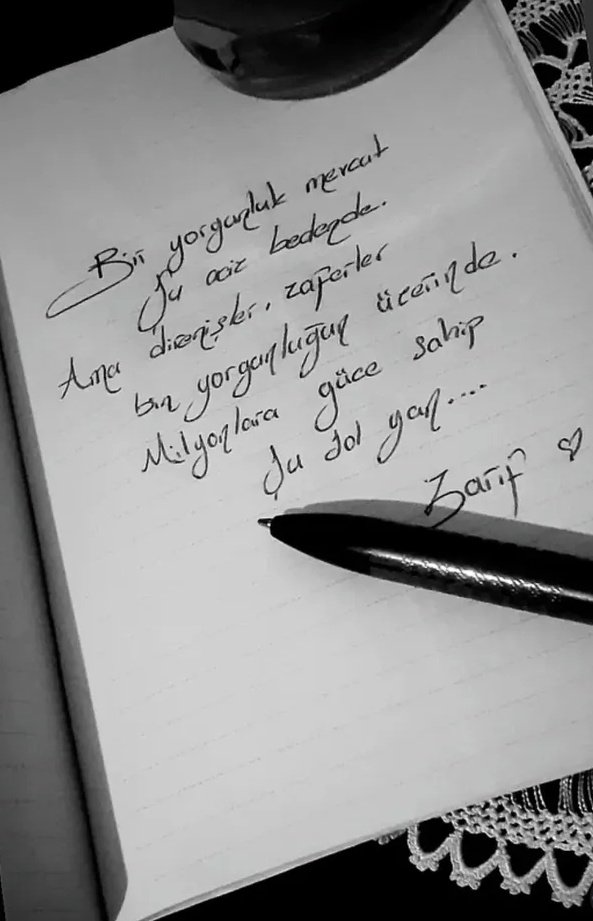 Bir yorgunluk mevcut
Şu aciz bedende.
Ama direnişler, zaferler
bin yorgunluğun üzerinde.
Milyonlara güce sahip
Şu sol yan....
Zarif ♡